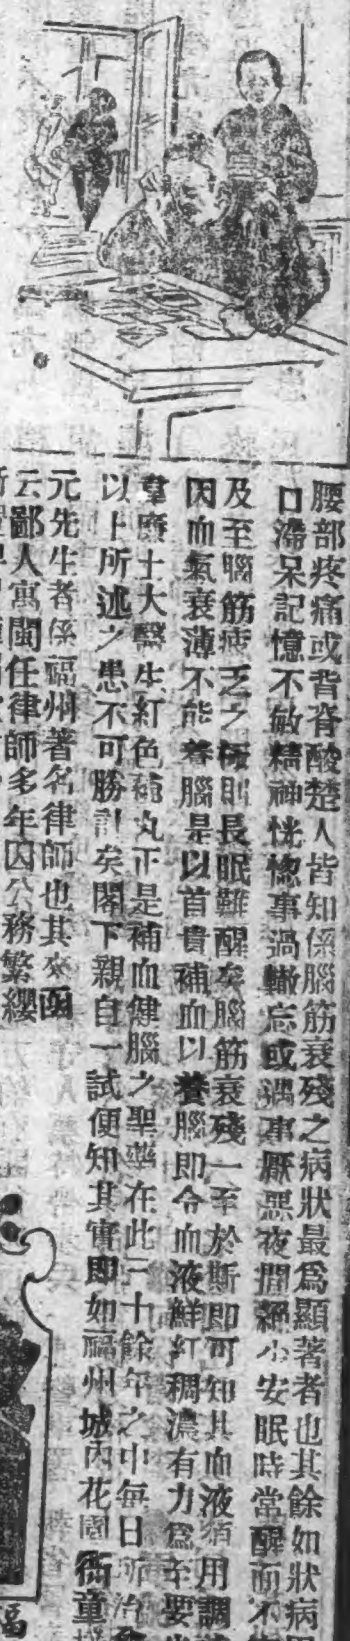 腰部疼痛或背脊酸楚人皆知係腦筋衰殘之病狀最爲顯著者也其餘如狀病
口滯呆記憶不敏精神恍惚事過輒忘或遇事厭惡夜間絕少安眠時常醒而不
及至腦筋疲乏之極則長眠難醒矣腦筋衰殘一至於斯即可知其血液須用調
因血氣衰薄不能養腦是以首貴補血以養腦即令血液鮮紅稠濃有力爲至要
韋廉士大醫生紅色補丸正是補血健腦之聖藥在此三十餘年之中每日所治
以上所述之患不可勝計矣閣下親自一試便知其實即如福州城內花園衖童
元先生者係福州著名律師也其來函
云鄙人寓閩任律師多年因公務繁纓
福